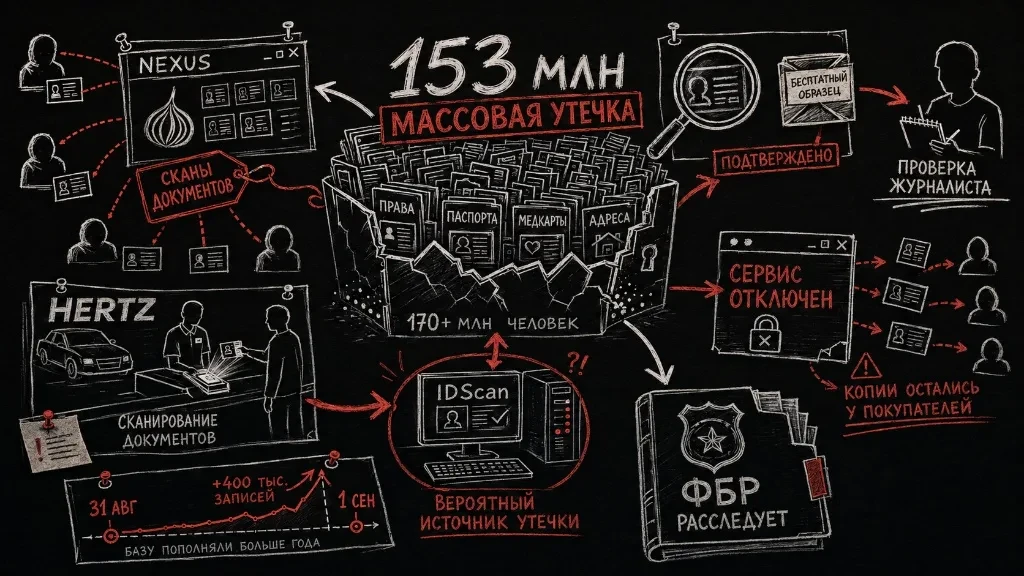 NEXUS
СКАНЫ
ДОКУМЕНТОВ
153 МЛН
МАССОВАЯ УТЕЧКА
ПРАВА
ПАСПОРТА
МЕДКАРТЫ
АДРЕСА
170+ МЛН ЧЕЛОВЕК
БЕСПЛАТНЫЙ
ОБРАЗЕЦ
ПОДТВЕРЖДЕНО
ПРОВЕРКА
ЖУРНАЛИСТА
СЕРВИС
ОТКЛЮЧЕН
КОПИИ ОСТАЛИСЬ
У ПОКУПАТЕЛЕЙ
HERTZ
СКАНИРОВАНИЕ
ДОКУМЕНТОВ
!
31 АВГ
+400 ТЫС.
ЗАПИСЕЙ
1 СЕН
БАЗУ ПОПОЛНЯЛИ БОЛЬШЕ ГОДА
?!
IDScan
ВЕРОЯТНЫЙ
ИСТОЧНИК УТЕЧКИ
ФБР
РАССЛЕДУЕТ